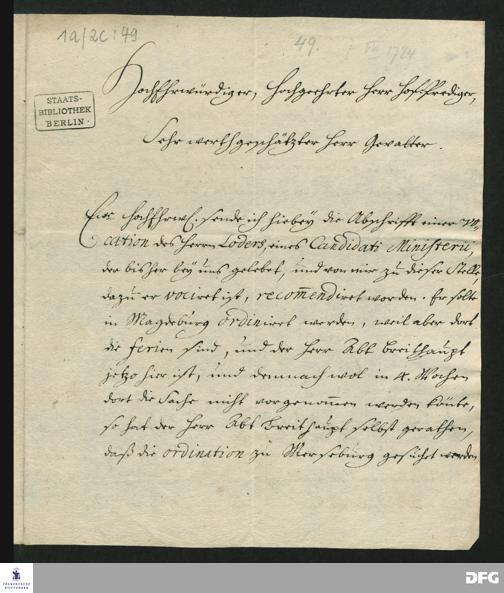 1a/2c:49
49.
VII 1724
STAATS-
BIBLIOTHEK
BERLIN
HochEhrwürdiger, Hochgeehrter Herr HofPrediger,
Sehr werthgeschätzter Herr Gevatter.
Ew. HochEhrw. sende ich hiebey die Abschrifft einer Vo-
cation des Herrn Loders, eines Candidati Ministerii,
der bisher bey uns gelebet, und von mir zu dieser Stelle,
dazu er vociret ist, recom̄endiret worden. Er solte
in Magdeburg ordiniret werden, weil aber dort
die Ferien sind, und der Herr Abt Breithaupt
jetzo hier ist, und demnach wol in 4. Wochen
dort die Sache nicht vorgenom̄en werden könte,
so hat der Herr Abt Breithaupt selbst gerathen,
daß die ordination zu Merseburg gesucht werden
FRANCKESCHE
STIFTUNGEN
DFG